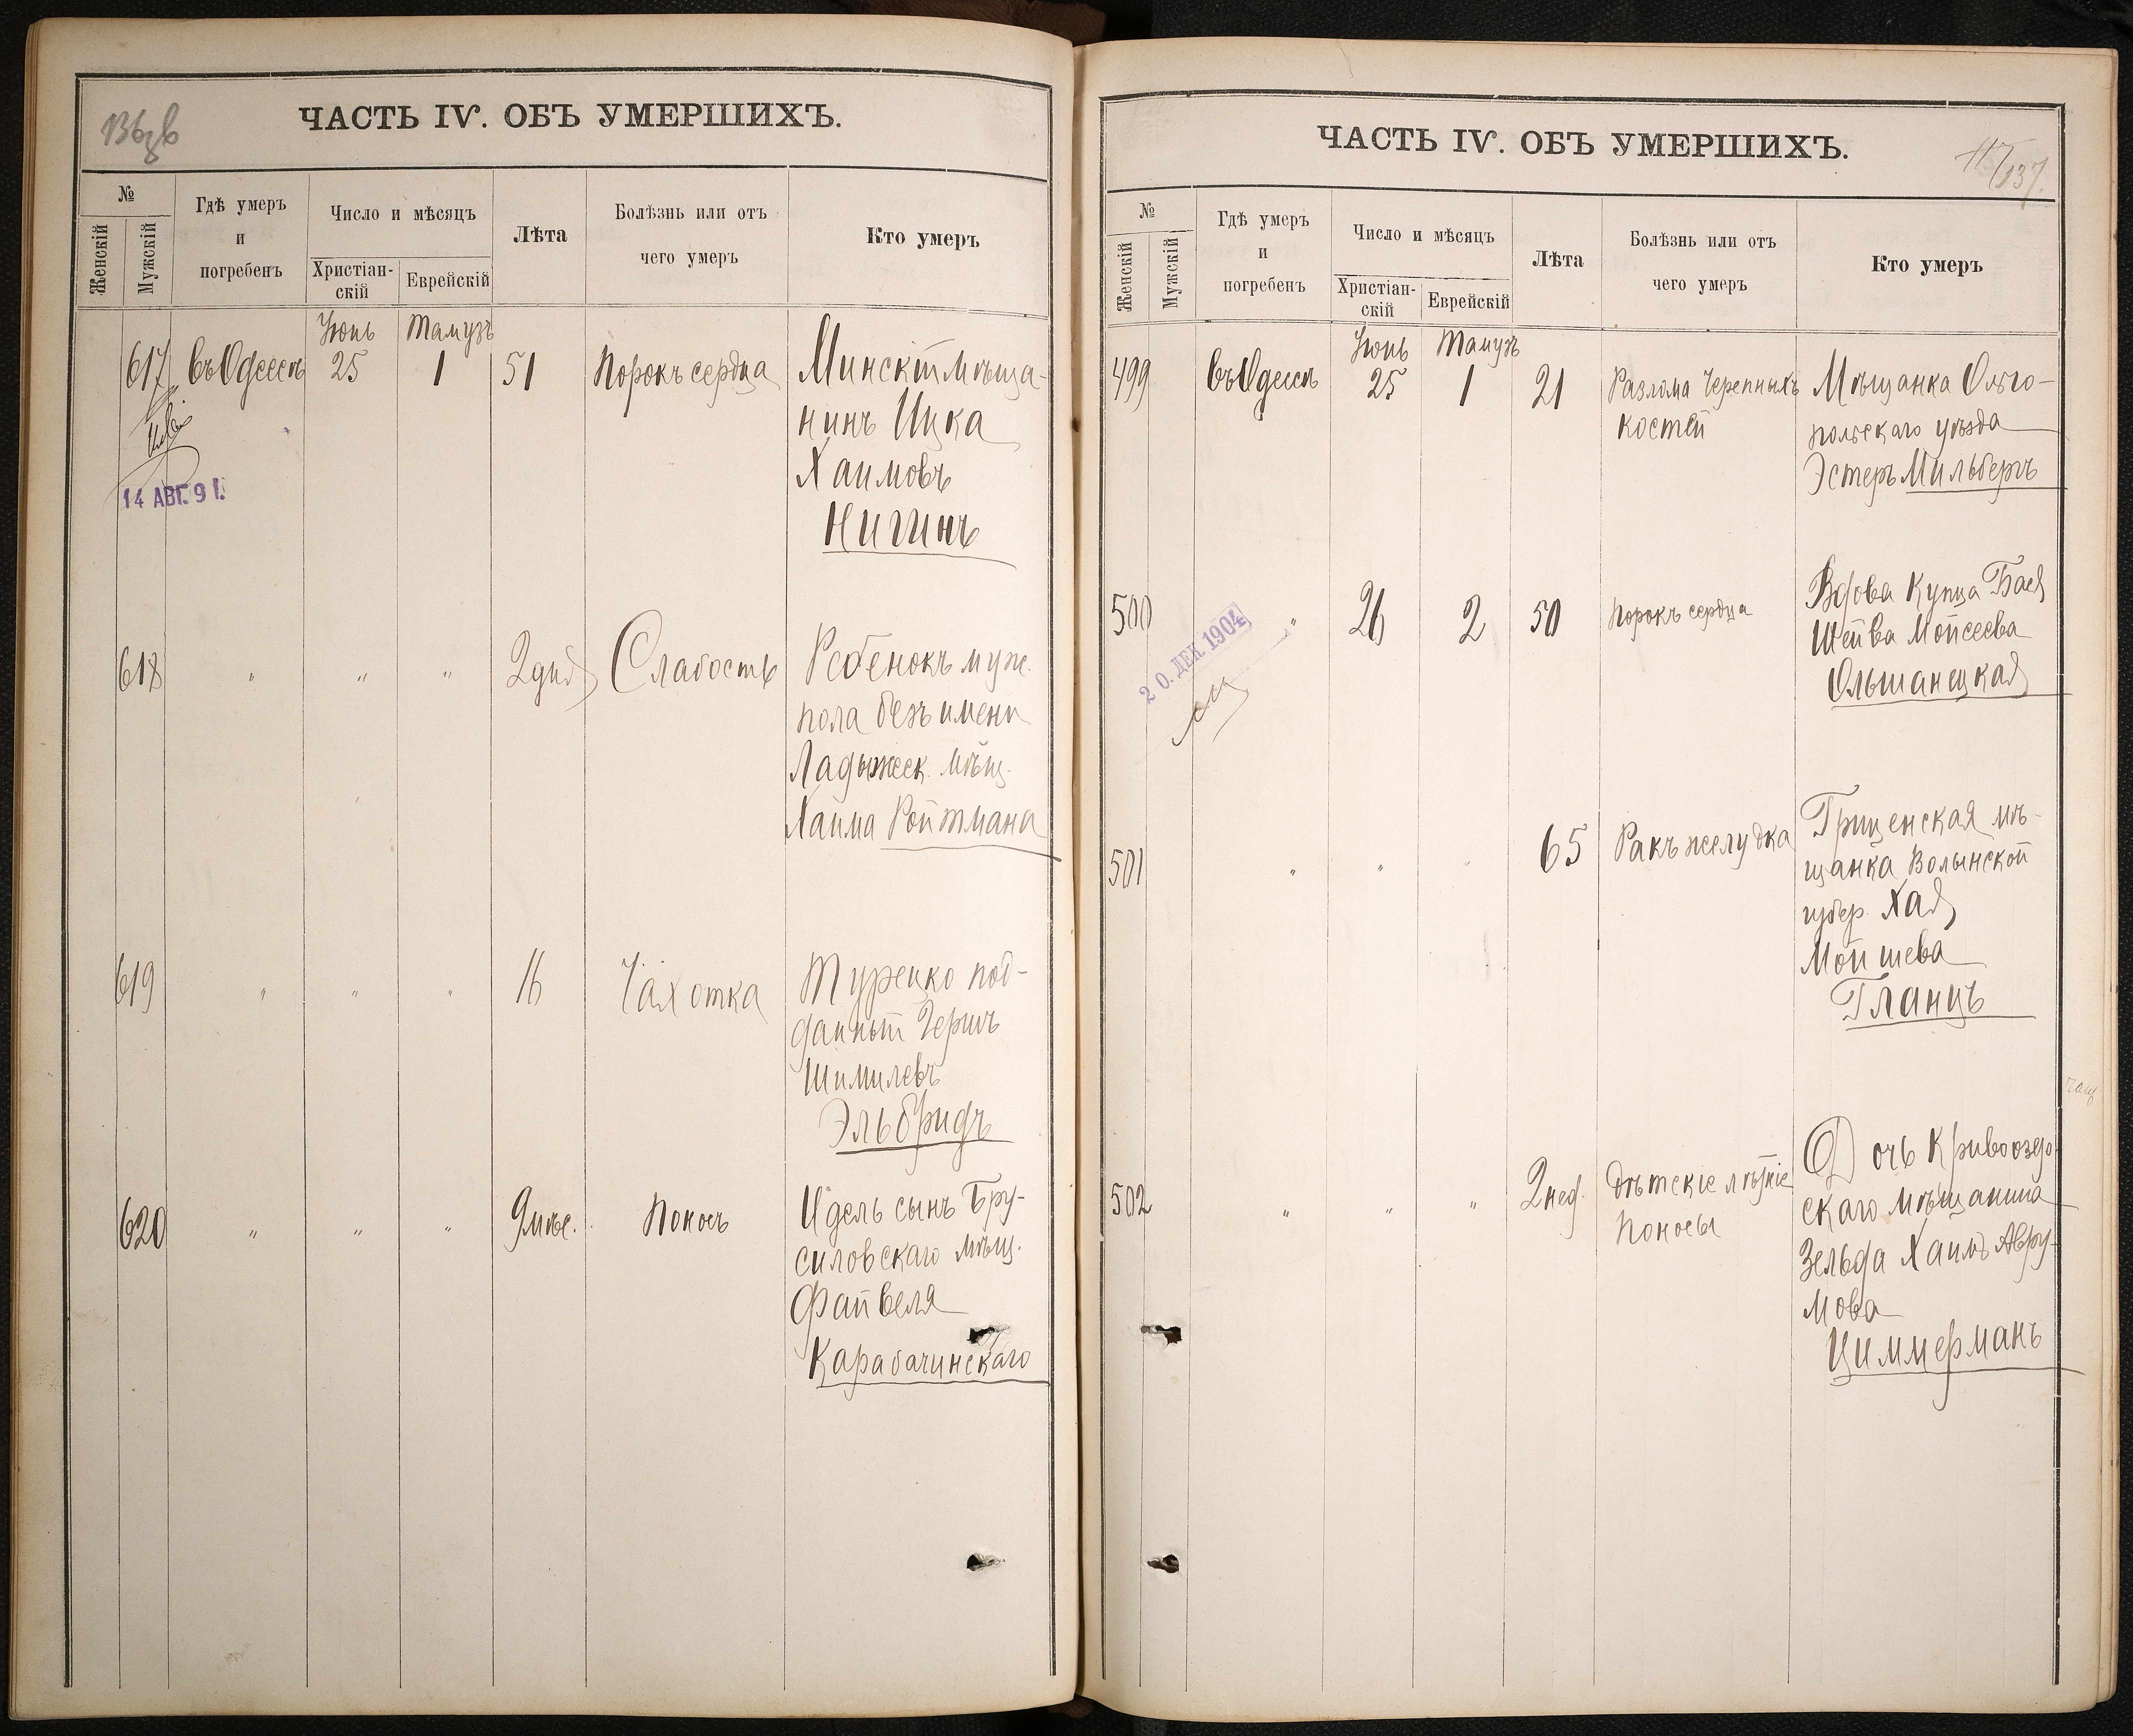 ЧАСТЬ IV. ОБЪ УМЕРШИХЪ.
№
Женскій
Мужскій
Гдѣ умеръ
и
погребенъ
Число и мѣсяцъ
Христіан-
скій
Еврейскій
Лѣта
Болѣзнь или отъ
чего умеръ
Кто умеръ
Іюнь Тамузъ
617 Въ Одессѣ 25 1 51 Порокъ сердца Минскій мѣща-
нинъ Ицка
Хаимовъ
Нигинъ
14 АВГ. 91.
618 " " " 2 дня Слабость Ребенокъ муж.
пола безъ имени
Ладыжск. мѣщ.
Хаима Ройтмана
619 " " " 16 Чахотка Турецко под-
данный Гершъ
Шмилевъ
Эльбридъ
620 " " " 9 мѣс. Поносъ Идель сынъ Бру-
силовскаго мѣщ.
Файвеля
Карабачинскаго
ЧАСТЬ IV. ОБЪ УМЕРШИХЪ.
117/137.
№
Женскій
Мужскій
Гдѣ умеръ
и
погребенъ
Число и мѣсяцъ
Христіан-
скій
Еврейскій
Лѣта
Болѣзнь или отъ
чего умеръ
Кто умеръ
Іюнь Тамузъ
499 Въ Одессѣ 25 1 21 Разлома Черепныхъ Мѣщанка Ольго-
костей польскаго уѣзда
Эстеръ Мильбергъ
500 " 26 2 50 Порокъ сердца Вдова Купца Бася
Шейва Мойсеева
Ольшанецкая
20. ДЕК. 1904
501 " " " 65 Ракъ желудка Грицевская мѣ-
щанка Волынской
губер. Хая
Мойшева
Гланцъ
502 " " " 2 нед. Дѣтскіе лѣтніе Дочь Кривоозер-
поносы скаго мѣщанина
Зельда Хаимъ Авру-
мова
Циммерманъ